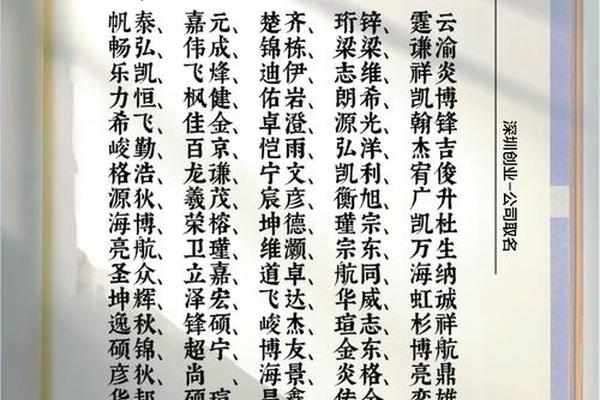 帆泰、嘉元、楚齐、珩锌、霆云
畅弘、伟成、锦栋、梁梁、谦渝
乐凯、飞烽、迪伊、志维、祥炎
力恒、枫健、佑岩、朗希、凯博
希飞、佳金、卓澄、源光、翰锋
峻勤、百京、恺雨、弘洋、杰吉
格浩、龙谦、宁文、凯利、宥俊
源狄、羲茂、宸彦、衡旭、广升
海博、荣榕、坤德、瑾宗、凯杜
亮航、卫瑾、维灏、宗东、万生
圣众、立嘉、道卓、航同、海纳
坤辉、泽宏、飞达、华威、虹诚
逸秋、锋硕、峻杰、瑄志、杉祥
硕锦、超宁、博友、金东、博航
彦狄、尚、海景、炎格、亮鼎
深圳创业-公司取名